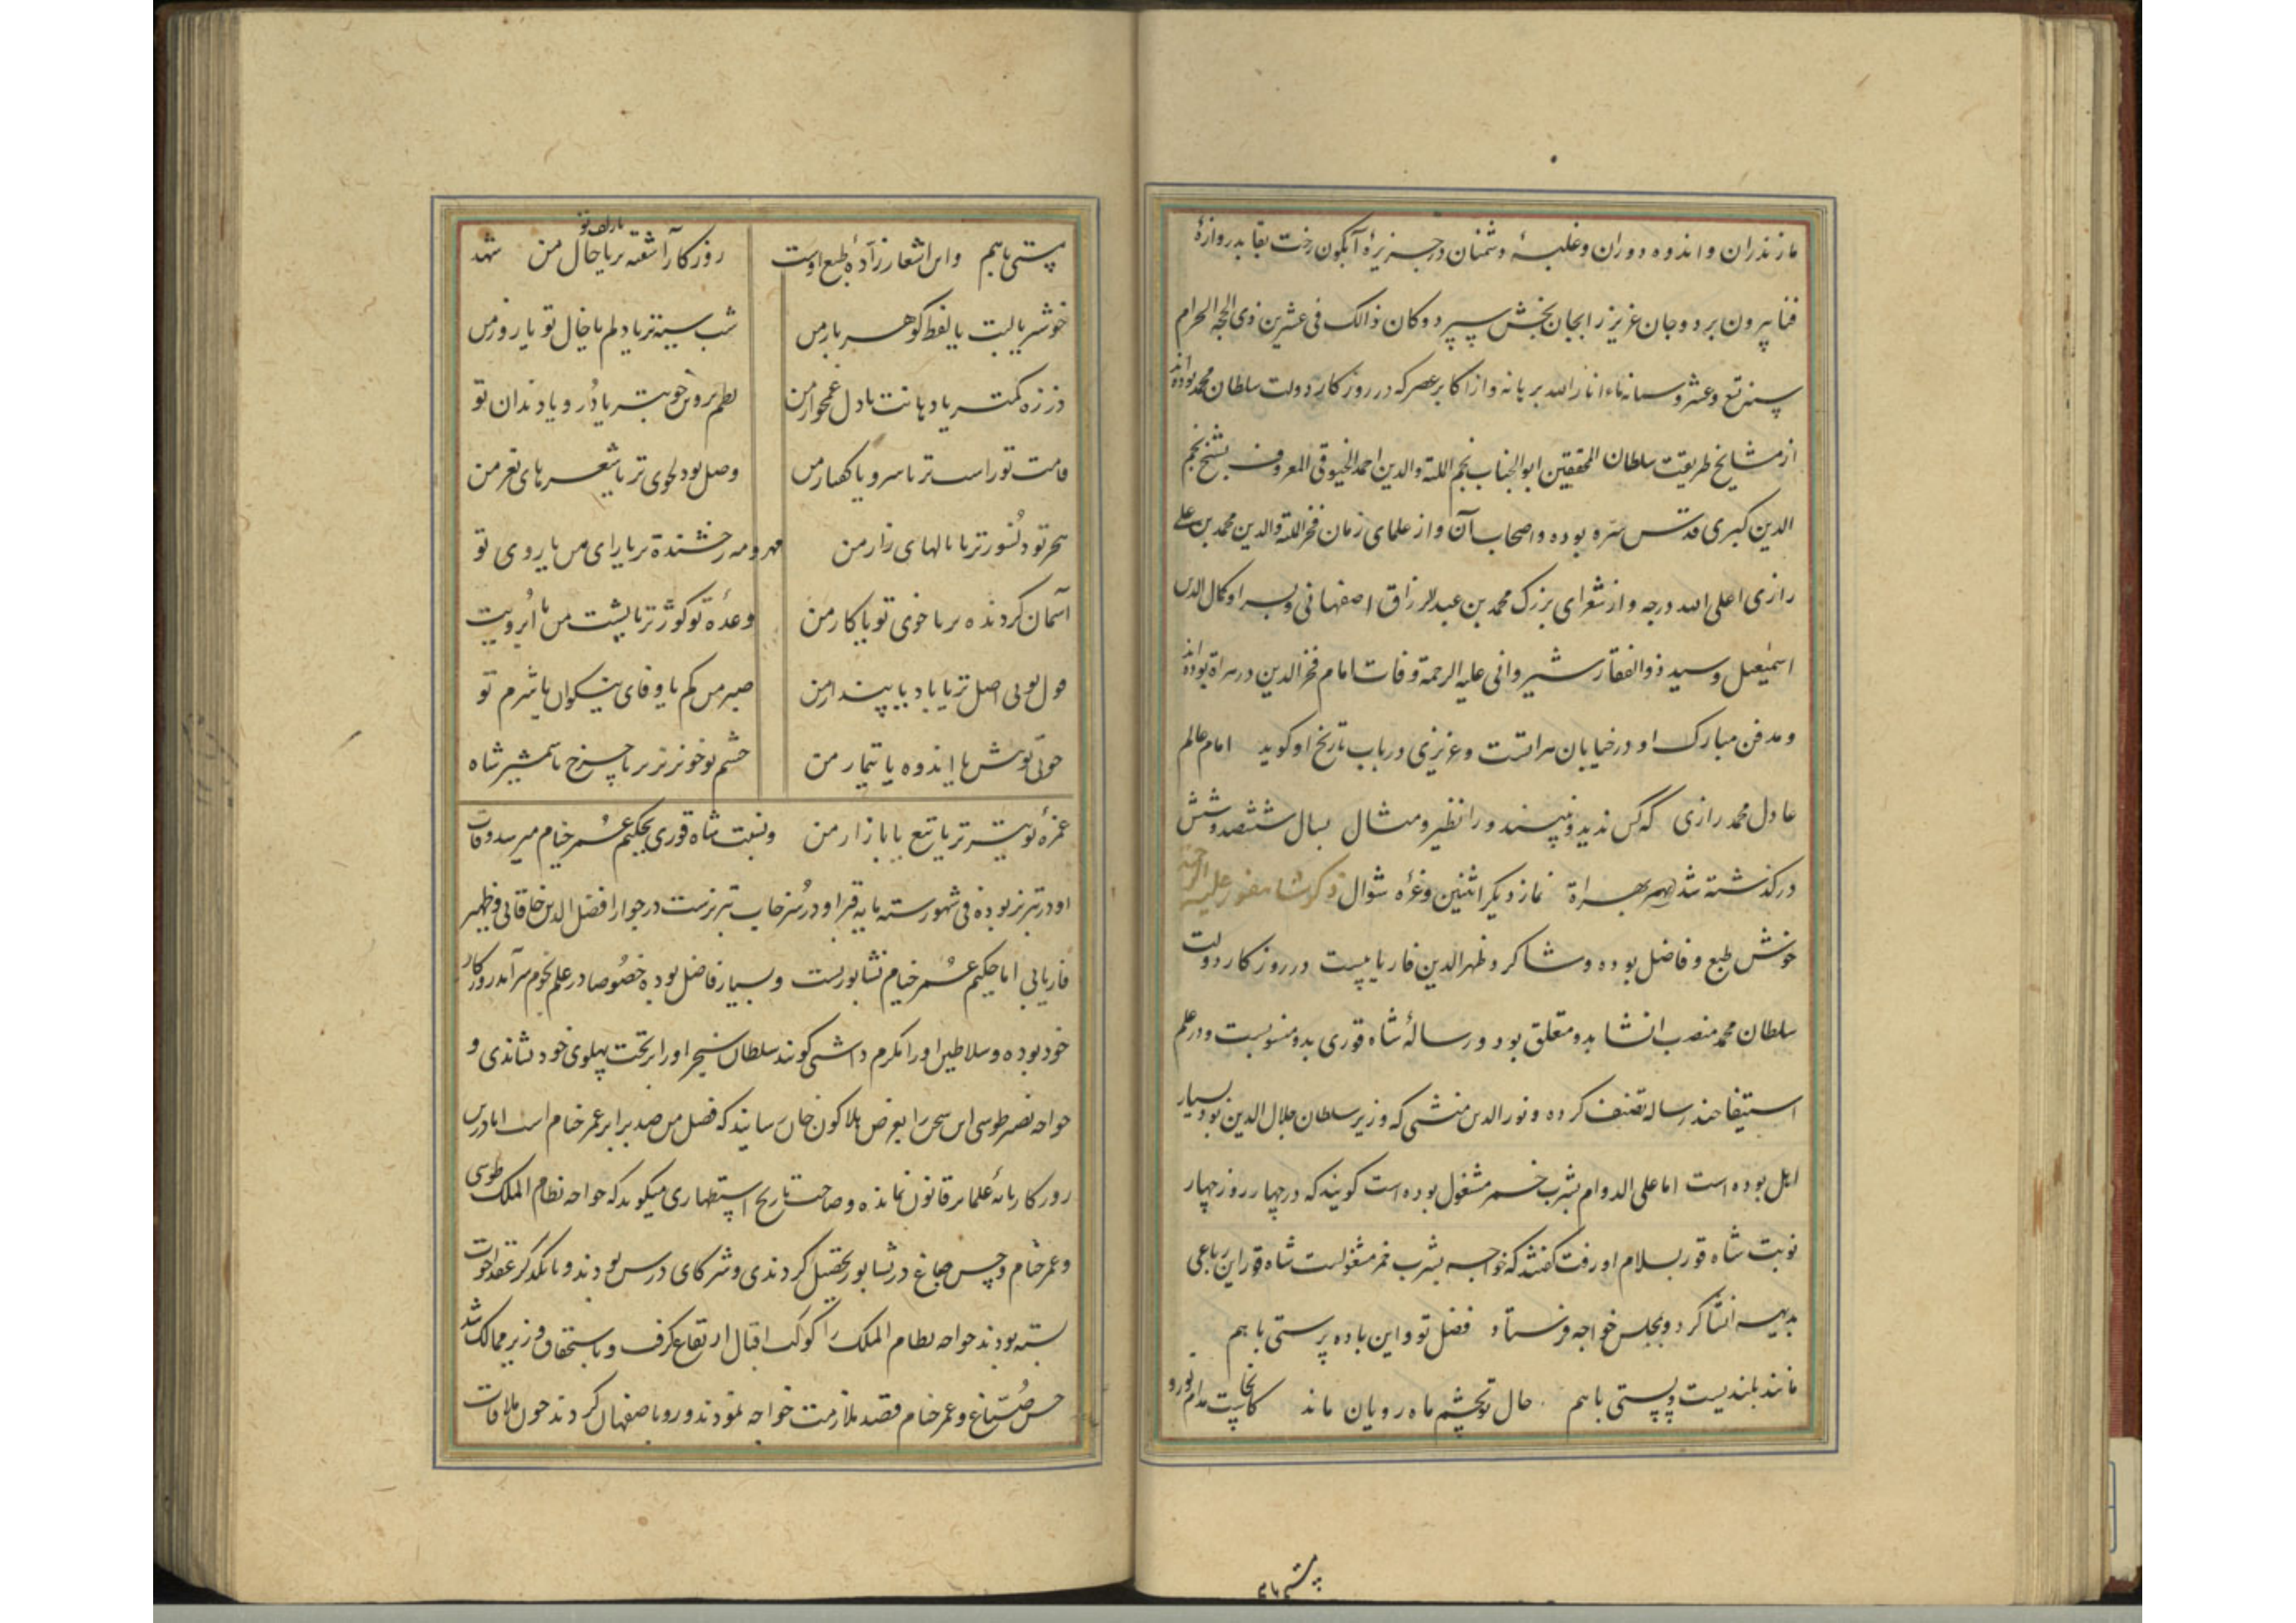 مازندران و اندوه دوران و غلبهٔ دشمنان در جزیرهٔ آبگون رخت بقا بدروازهٔ
فنا بیرون برد و جان عزیز را بجان بخش سپرد و کان ذالک فی عشرین ذی الحجه الحرام
سنه تسع و عشر و ستمانه اناء انار الله برهانه و از اکابر عصر که در روزکار دولت سلطان محمد بوده‌اند
از مشایخ طریقت سلطان المحققین ابو الجناب نجم الملة والدین احمد الخیوقی المعروف بشیخ نجم
الدین کبری قدس سره بوده و اصحاب آن و از علمای زمان فخر الملة والدین محمد بن علی
رازی اعلی الله درجه و از شعرای بزرک محمد بن عبد الرزاق اصفهانی و پسر او کمال الدین
اسمٰعیل و سید ذوالفقار شیروانی علیه الرحمة وفات امام فخر الدین در هراة بوده
و مدفن مبارک او در خیابان هراتست و عزیزی در باب تاریخ او کوید امام عالم
عادل محمد رازی که کس ندید و نبیند ورا نظیر و مثال بسال ششصد و شش
درکذشته شد بهراة نماز دیکر اثنین و غرهٔ شوال ذکر شاهفور علیه الرحمه
خوش طبع و فاضل بوده و شاکرد ظهر الدین فاریابیست در روزکار دولت
سلطان محمد منصب انشا بدو متعلق بود و رسالهٔ شاه قوری بدو منسوبست و در علم
استیفا چند رساله تصنف کرده و نور الدین منشی که وزیر سلطان جلال الدین بود بسیار
اهل بوده است اما علی الدوام بشرب خمر مشغول بوده است کویند که در چهار روز چهار
نوبت شاه قور بسلام او رفت کفتند که خواجه بشرب خمر مشغولست شاه قور این رباعی
بدیهه انشا کرد و بمجلس خواجه فرستاد فضل تو و این باده پرستی با هم
مانند بلندیست و پستی با هم حال تو بچشم ماه رویان ماند کانجاست مدام نور و
پرستی با هم
مستی با هم و این اشعار زآدهٔ طبع اوست روزکار آشفته تر یا حال من شد
یا زلف تو
خوشتر یا لبت یا لفظ کوهر بار من شب سیه تر یا دلم یا خال تو یا روز من
ذره کمتر یا دهانت یا دل غمخوار من نظم پروین خوبتر یا در و یا دندان تو
قامت تو راست تر یا سرو یا کفتار من وصل تو دلجوی تر یا شعرهای نغز من
هجر تو دلسوزتر یا نالهای زار من مهر و مه رخشنده تر یا رای من یا روی تو
آسمان کردنده تر یا خوی تو یا کار من وعدهٔ تو کوژتر یا پشت من یا ابرویت
قول تو بی اصل تر یا باد یا پندار من صبر من کم یا وفای نیکوان یا شرم تو
خوبی تو بیش یا اندوه یا تیمار من چشم تو خونریزتر یا چرخ یا شمشیر شاه
غمزهٔ تو تیزتر یا تیغ یا بازار من و نسبت شاه قوری بحکیم عمر خیام میرسد وفات
او در تبریز بوده فی شهور سته مایه قبر او در سرخاب تبریزست در جوار افضل الدین خاقانی و ظهیر
فاریابی اما حکیم عمر خیام نشابوریست و بسیار فاضل بوده خصوصا در علم نجوم سرآمد روزکار
خود بوده و سلاطین او را مکرم داشتی کویند سلطان سنجر او را بر تخت پهلوی خود نشاندی و
خواجه نصیر طوسی این سخن را بعرض هلاکون خان رسانید که فضل من صد برابر عمر خیام است اما درین
روزکار مانهٔ علما بر قانون نمانده و صاحب تاریخ استظهاری میکوید که خواجه نظام الملک طوسی
و عمر خیام و حسن صباغ در نشابور تحصیل کردندی و شرکای درس بودند و با یکدکر عقد اخوت
بسته بودند خواجه نظام الملک را کوکب اقبال ارتفاع کرفت و باستحقاق وزیر ممالک شد
حسن صباغ و عمر خیام قصد ملازمت خواجه نمودند و رو باصفهان کردند چون ملاقات